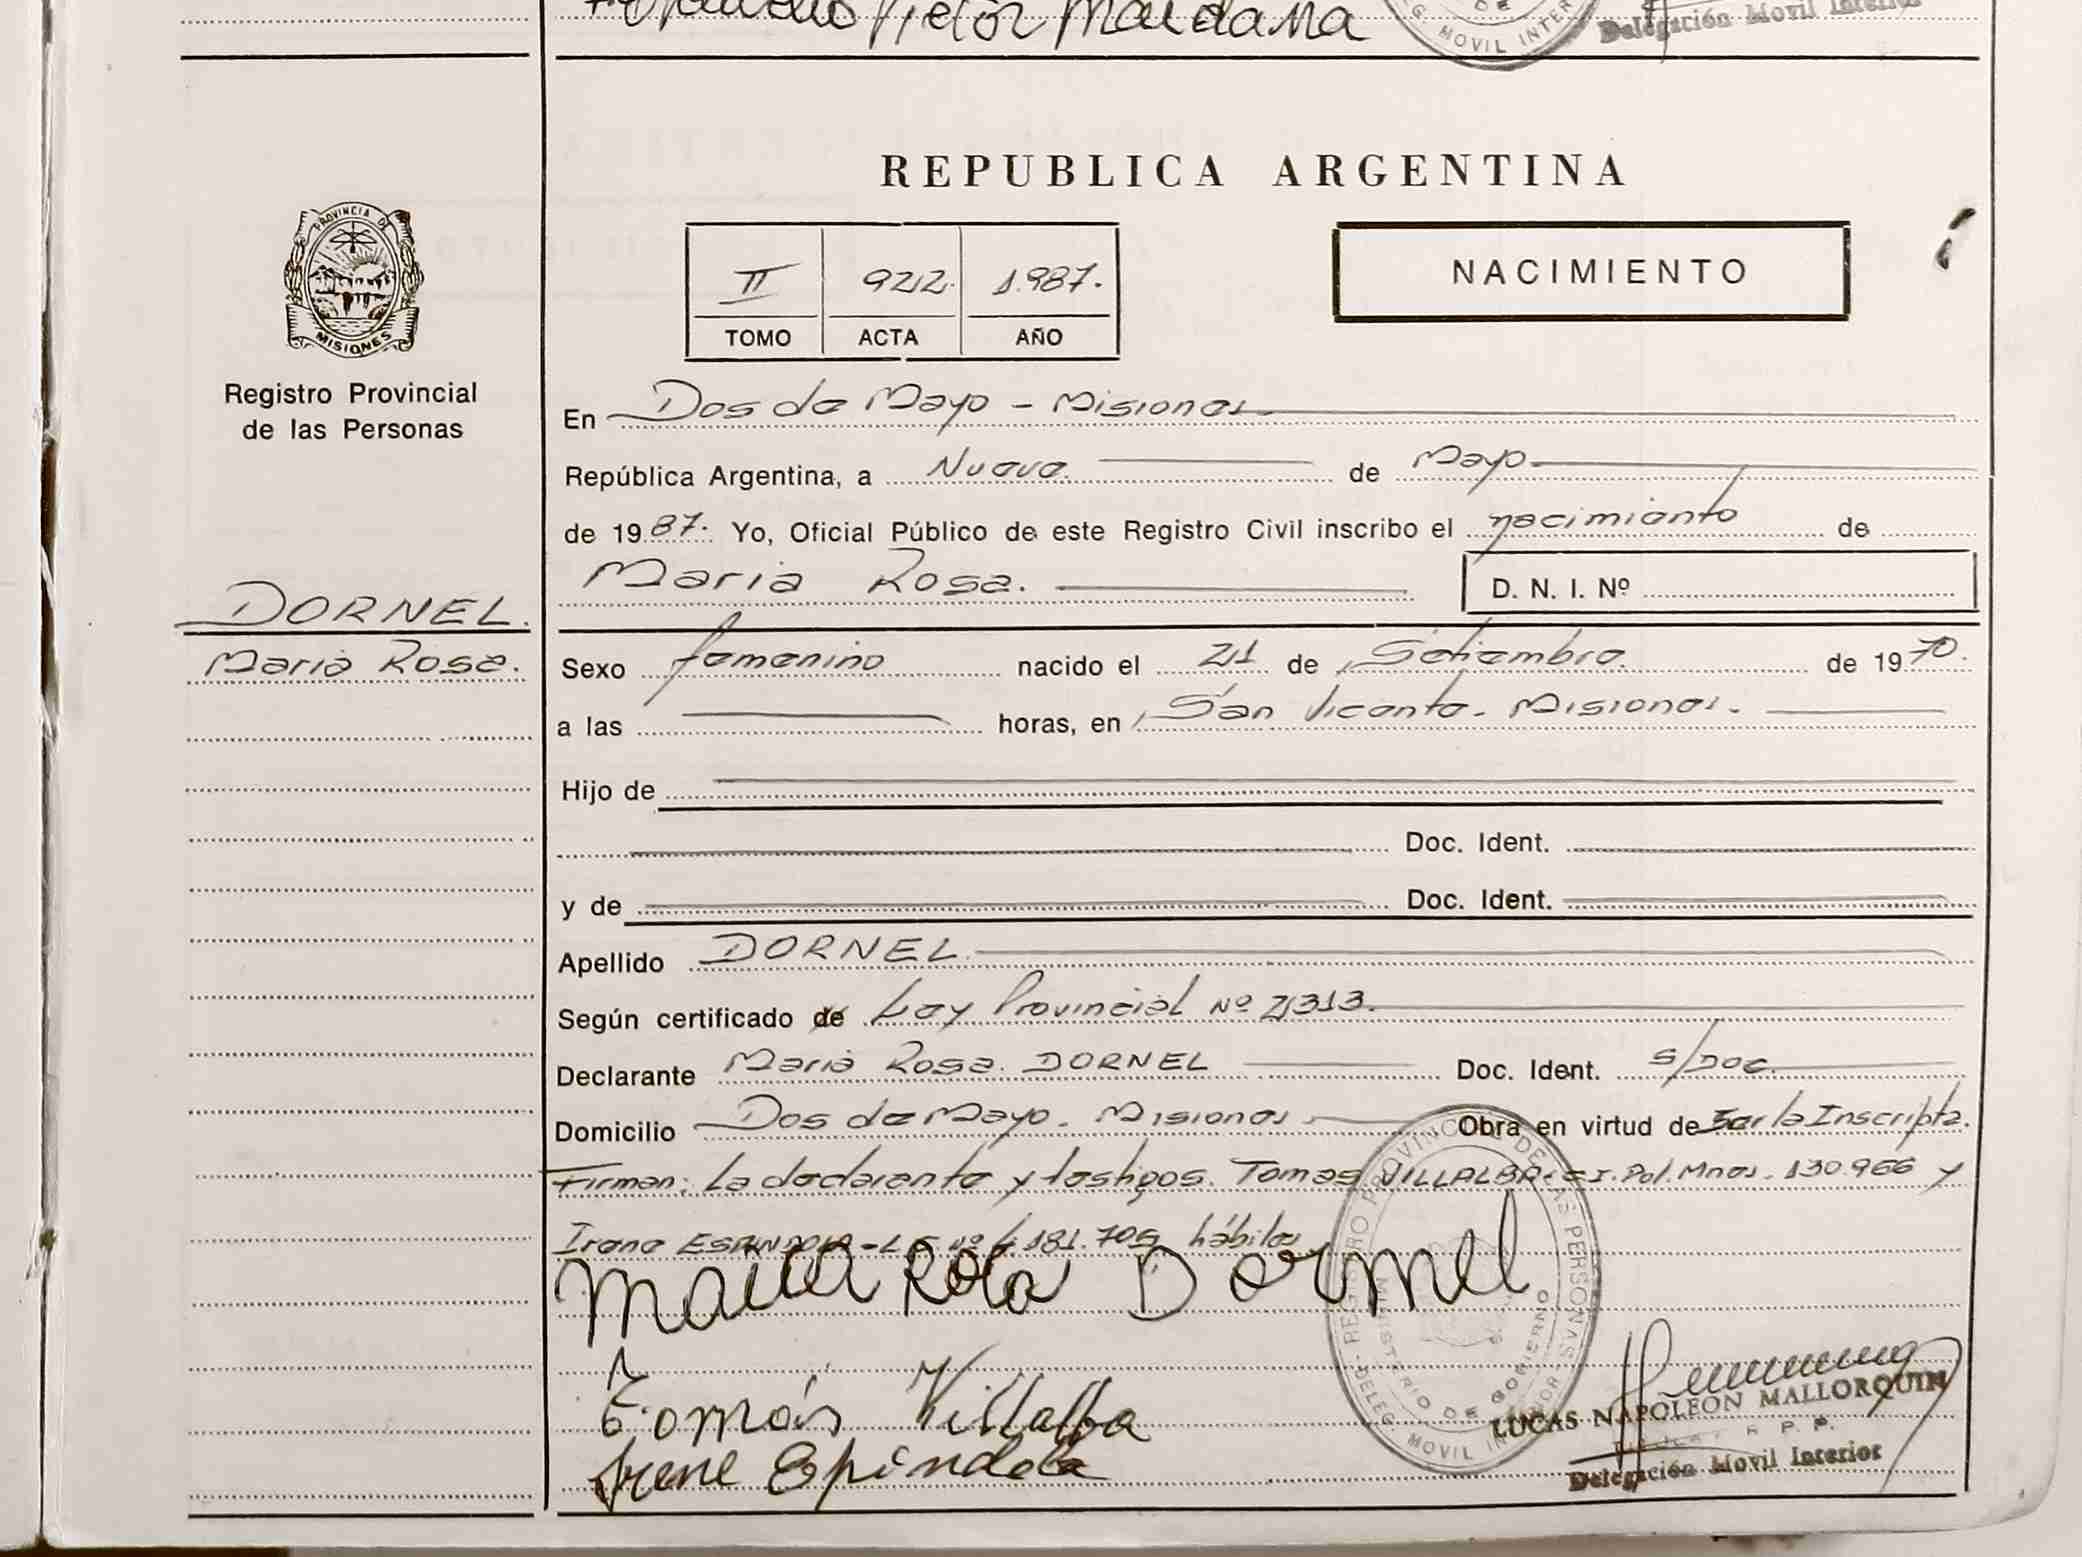 Victor Maidana
MOVIL INTER
Delegación Movil Interior
REPUBLICA ARGENTINA
PROVINCIA DE
MISIONES
Registro Provincial
de las Personas
II 922. 1.987.
TOMO ACTA AÑO
NACIMIENTO
En Dos de Mayo - Misiones
República Argentina, a Nueve. de Mayo
de 1987. Yo, Oficial Público de este Registro Civil inscribo el nacimiento de
Maria Rosa. D. N. I. Nº
DORNEL.
Maria Rosa.
Sexo femenino nacido el 21 de Setiembre. de 1970.
a las horas, en San Vicente. Misiones.
Hijo de
Doc. Ident.
y de Doc. Ident.
Apellido DORNEL.
Según certificado de Ley Provincial Nº 2313.
Declarante Maria Rosa. DORNEL Doc. Ident. S/Doc.
Domicilio Dos de Mayo. Misiones Obra en virtud de Ser la Inscripta.
Firman: La declarante y testigos. Tomas VILLALBA C.I. Pol. Mnes. 130.966 y
Irene ESPINDOLA - Nº 181.705 hábiles
Maria Rosa Dornel
Tomás Villalba
Irene Espindola
REGISTRO PROVINCIAL DE LAS PERSONAS
MINISTERIO DE GOBIERNO
DELEG. MOVIL INTERIOR
LUCAS NAPOLEON MALLORQUIN
R. P. P.
Delegación Movil Interior